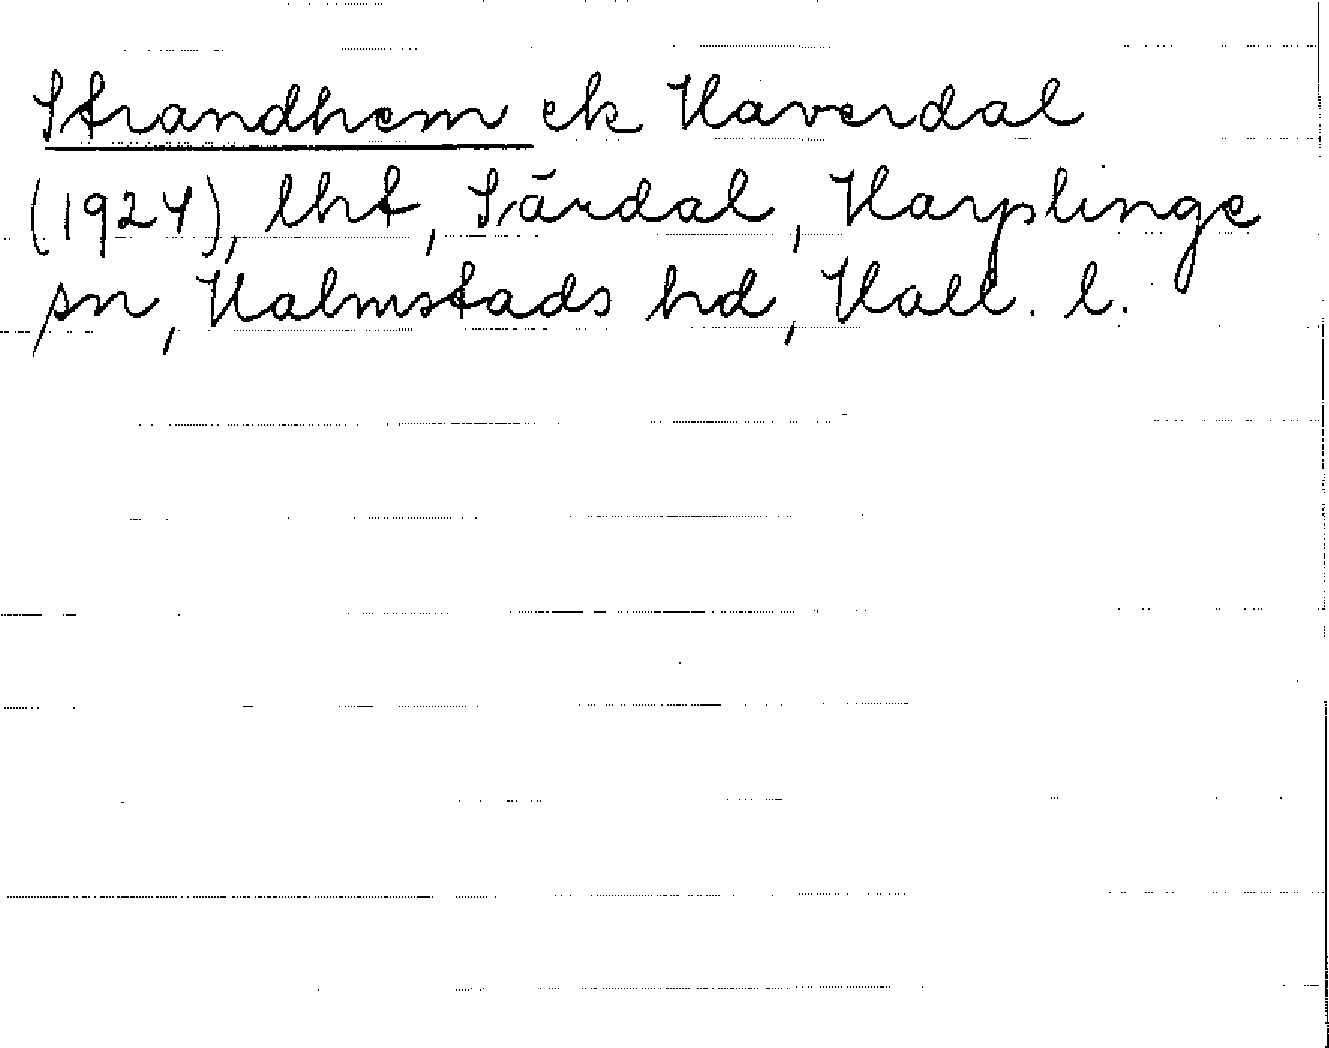 Strandhem ek Haverdal
(1924), lht, Särdal, Harplinge
sn, Halmstads hd, Hall. l.